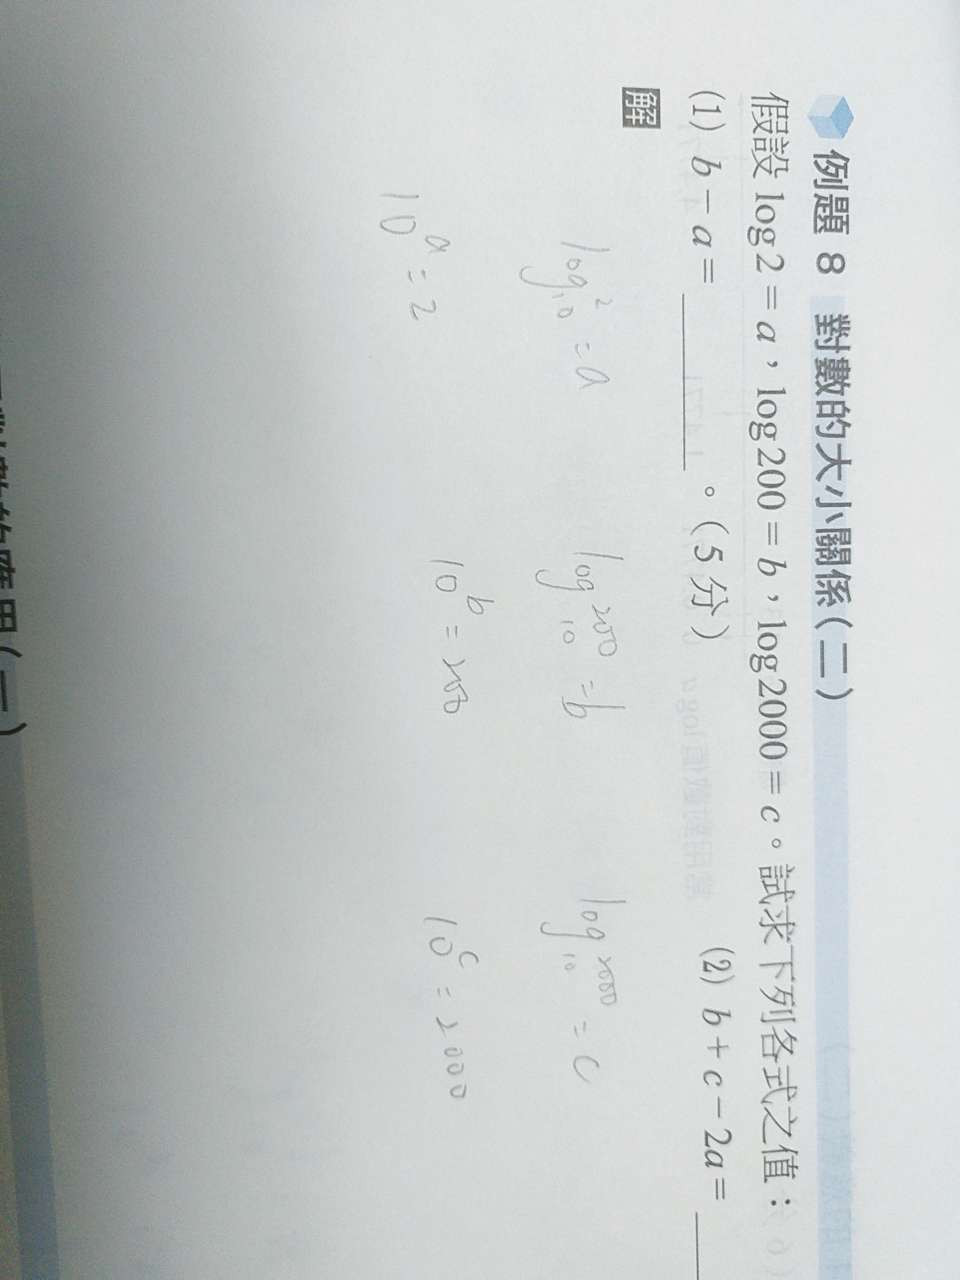 例題 8 對數的大小關係(二)
假設 log 2 = a，log 200 = b，log 2000 = c。試求下列各式之值：
(1) b − a = ______。(5分) (2) b + c − 2a = ___
解
log₁₀² = a log₁₀²⁰⁰ = b log₁₀²⁰⁰⁰ = c
10ᵃ = 2 10ᵇ = 200 10ᶜ = 2000